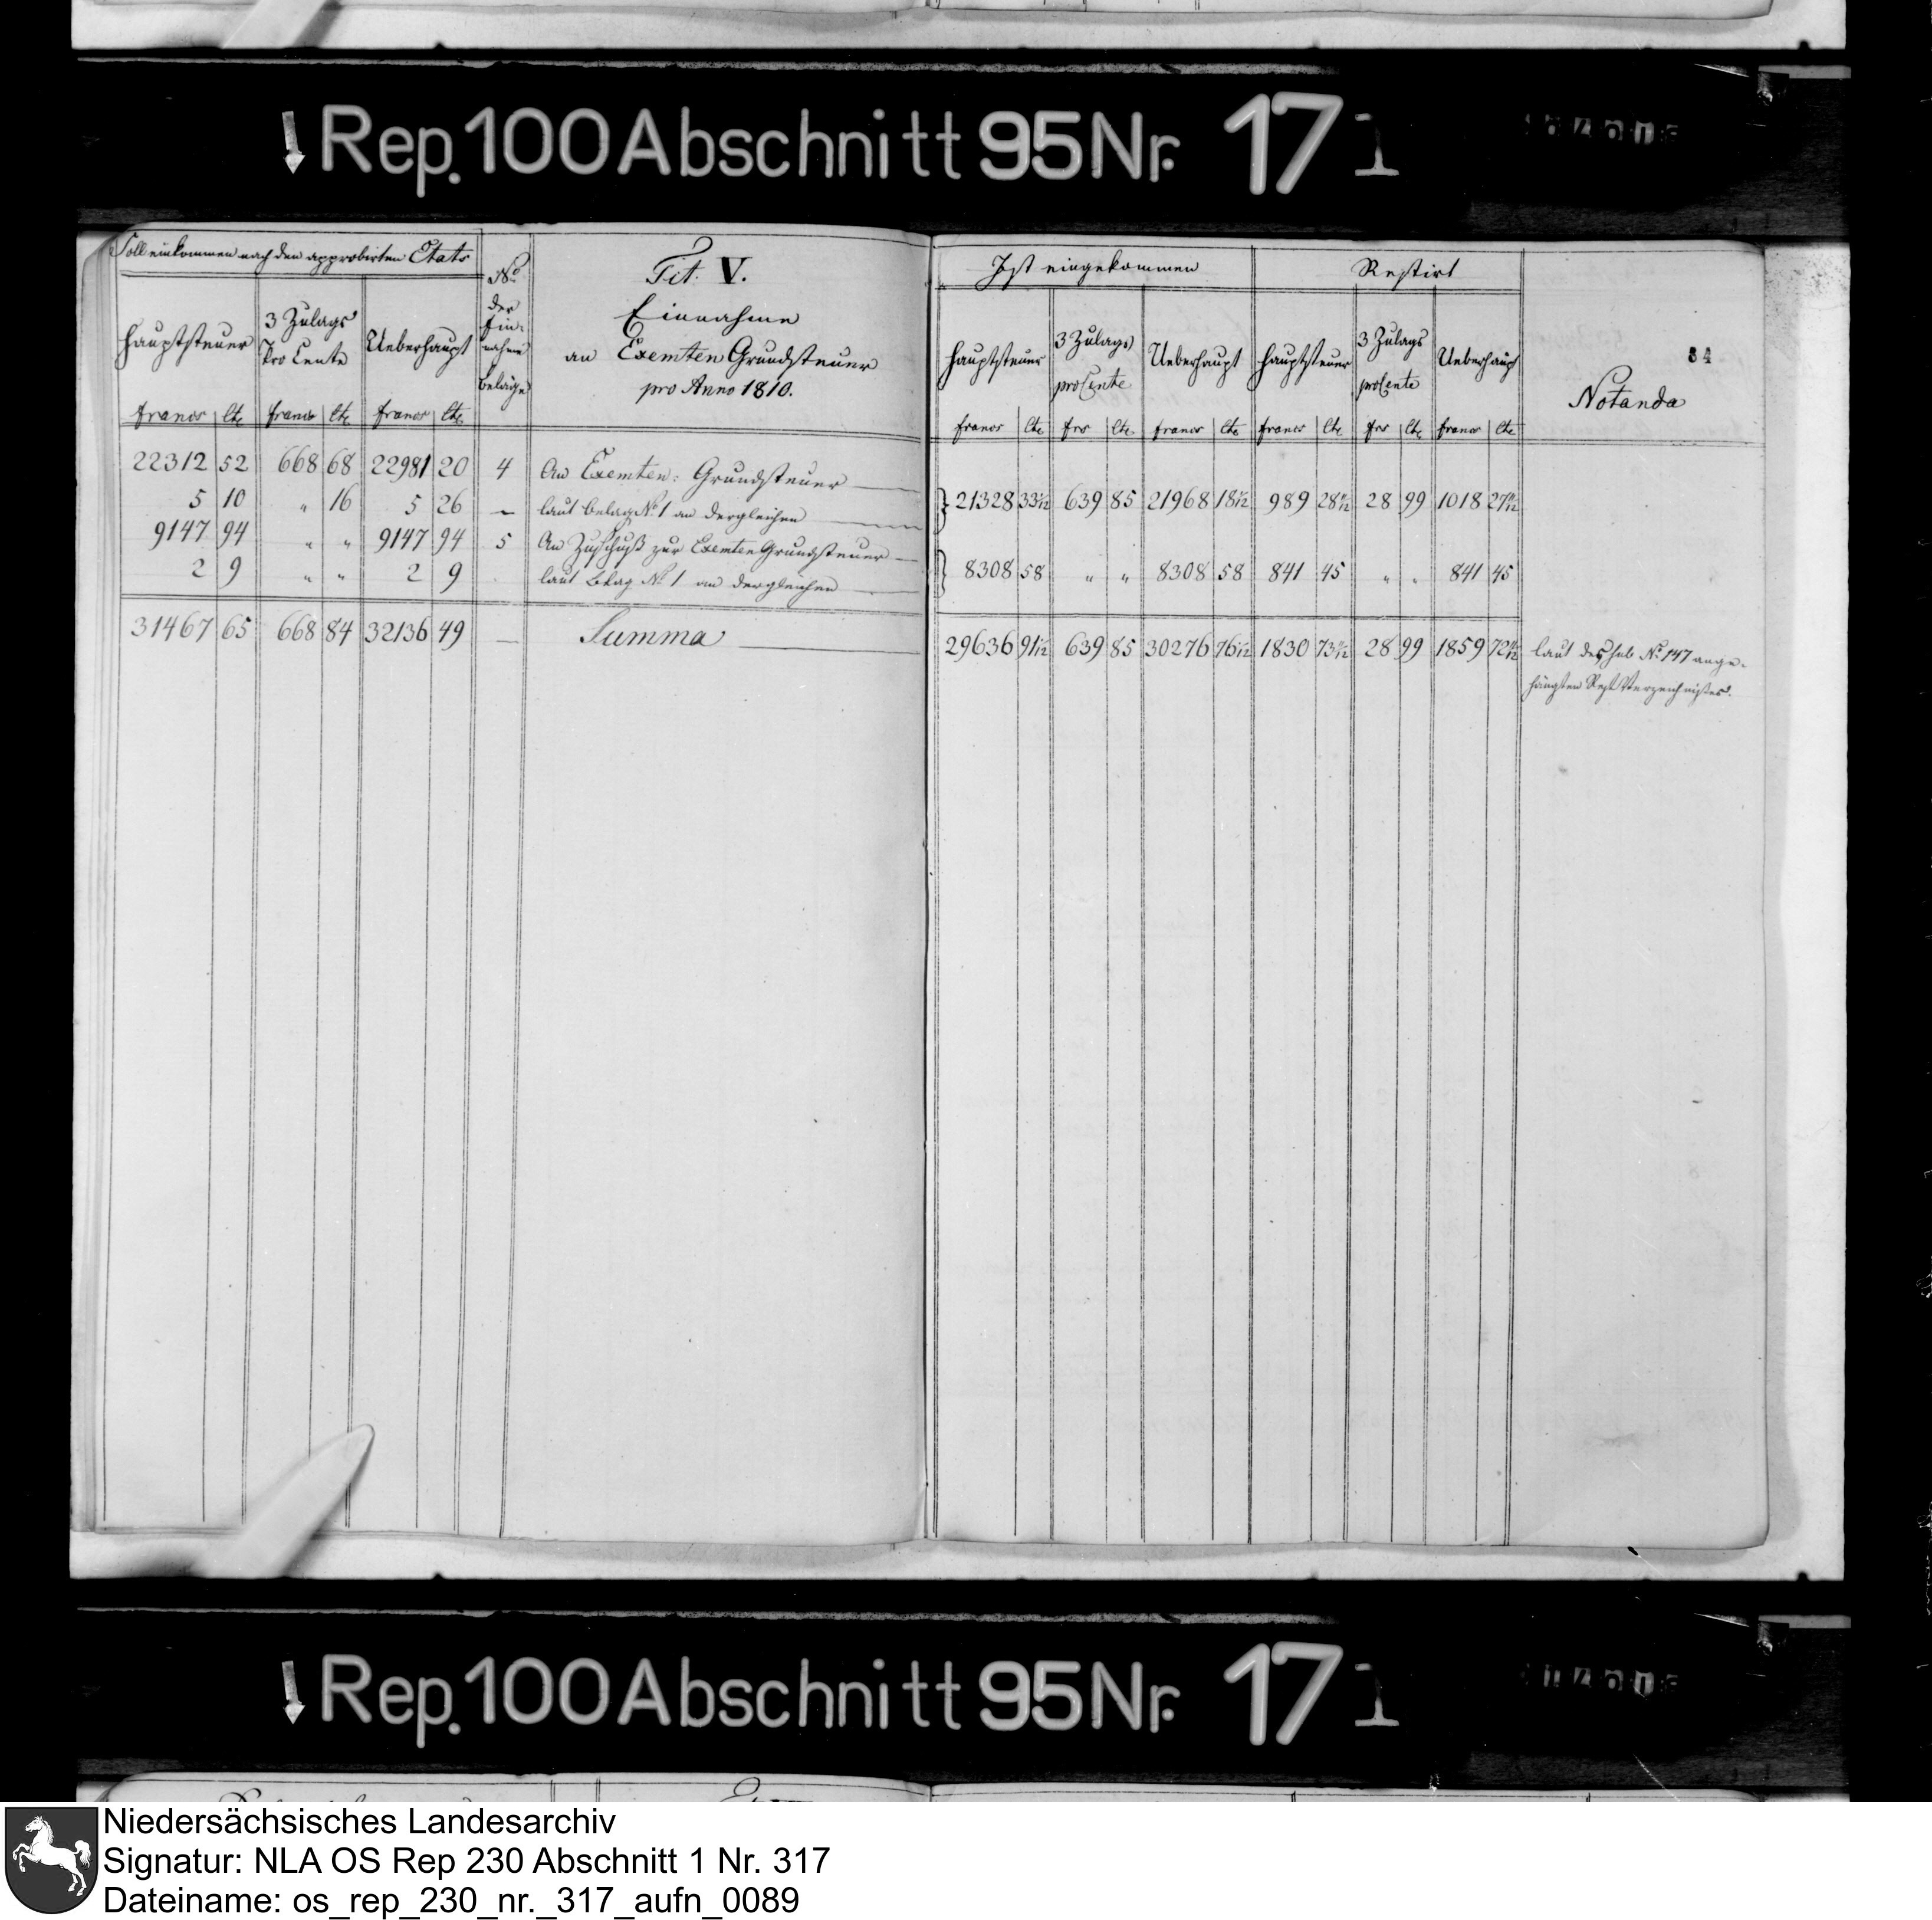 Rep. 100 Abschnitt 95 Nr. 171
Soll einkommen nach den approbirten Etats
No der Ein-nahme beläge
Tit. V.
Einnahme
an Exemten Grundsteuer
pro Anno 1810.
Hauptsteuer | 3 Zulags Pro Cente | Ueberhaupt
francs | Cte | francs | Cte | francs | Cte
22312 | 52 | 668 | 68 | 22981 | 20 | 4 | An Exemten: Grundsteuer
5 | 10 | " | 16 | 5 | 26 | – | laut belag No 1 an dergleichen
9147 | 94 | " | " | 9147 | 94 | 5 | An Zuschuß zur Exemten Grundsteuer
2 | 9 | " | " | 2 | 9 | laut Belag No 1 an dergleichen
31467 | 65 | 668 | 84 | 32136 | 49 | – | Summa
Ist eingekommen | Restirt
34
Hauptsteuer | 3 Zulags pro Cente | Ueberhaupt | Hauptsteuer | 3 Zulags pro Cente | Ueberhaupt | Notanda
francs | Cte | frs | Cte | francs | Cte | francs | Cte | frs | Cte | francs | Cte
21328 | 33 1/12 | 639 | 85 | 21968 | 18 1/12 | 989 | 28 11/12 | 28 | 99 | 1018 | 27 11/12
8308 | 58 | " | " | 8308 | 58 | 841 | 45 | " | " | 841 | 45
29636 | 91 1/12 | 639 | 85 | 30276 | 76 1/12 | 1830 | 73 11/12 | 28 | 99 | 1859 | 72 11/12 | laut des sub No 147 ange-
hängten Rest Verzeichnißes.
Rep. 100 Abschnitt 95 Nr. 171
Niedersächsisches Landesarchiv
Signatur: NLA OS Rep 230 Abschnitt 1 Nr. 317
Dateiname: os_rep_230_nr._317_aufn_0089